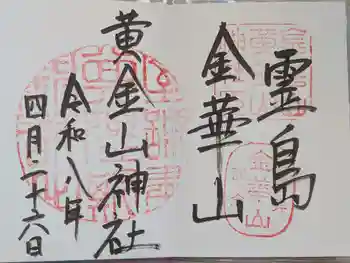 霊島
金華山
黄金山神社
令和八年
四月二十六日
金華山